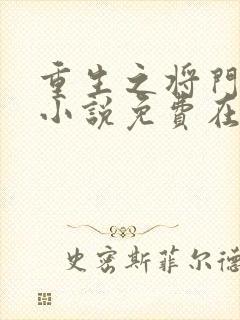 重生之将門
小説免費在
史密斯菲尔德